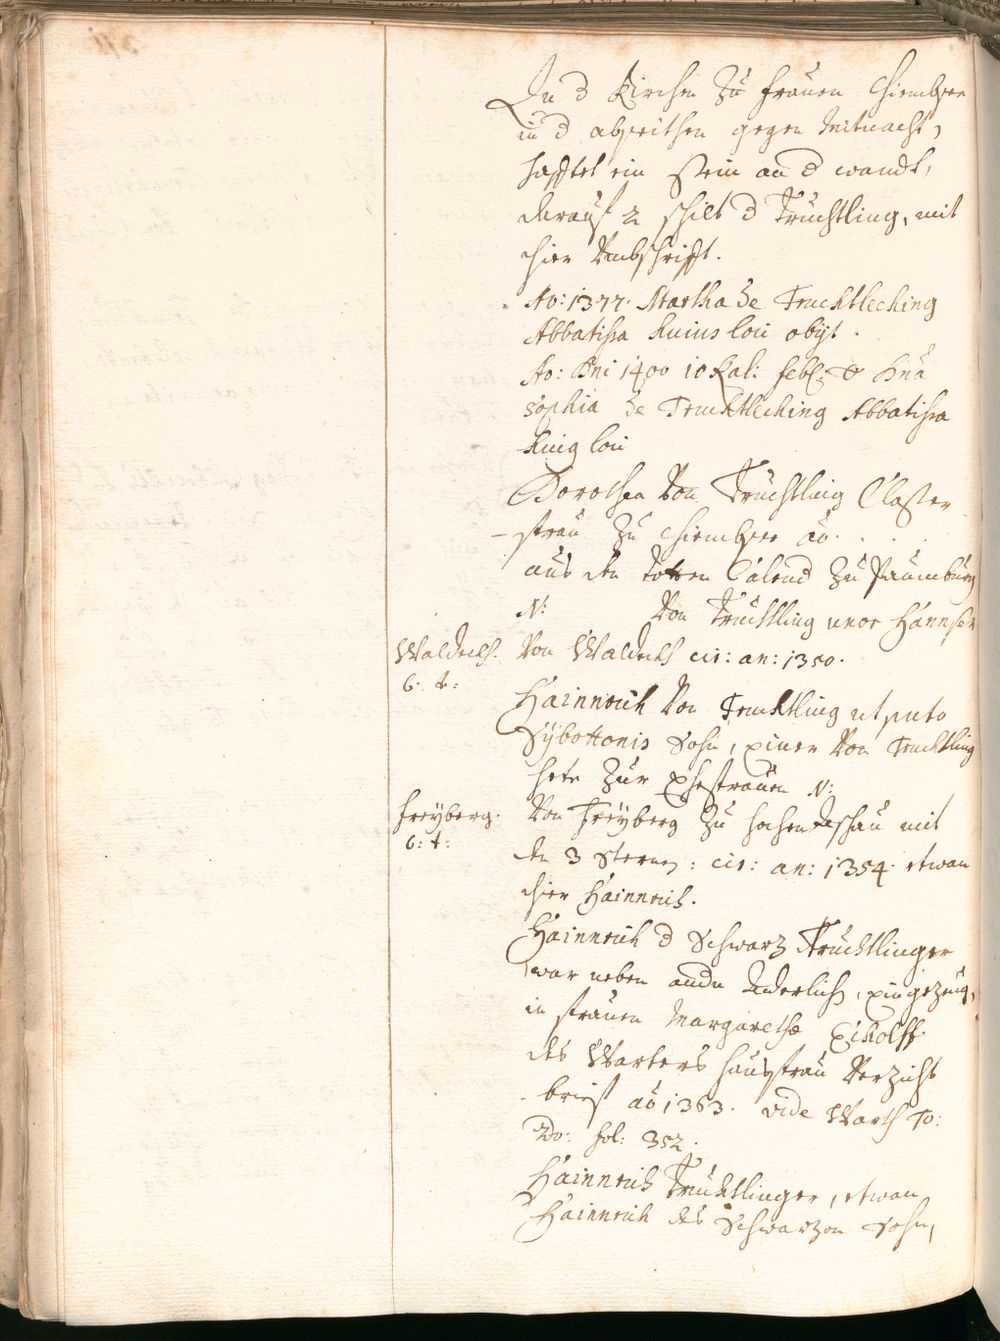 In d Kirchen zu frauen Chiembsee
in d abseithen gegen Mitnacht,
hafftet ein stein an d wandt,
darauf 2 schilt d Truchtling, mit
diser Umbschrifft.
Ao: 1377. Martha de Truchtleching
Abbatissa huius loci obijt.
Ao: Dni 1400 10 Kal: febr: O Dna
Sophia de Truchtleching Abbatissa
huig loci
Dorothea Von Truchtling Closter
frau zu Chiembsee ao. . . .
aus den totten Calend zu Paumburg
N: Von Truchtling uxor Hannsen
Waldeckh. Von Waldeckh cir: an: 1350.
6. t:
Hainnrich Von Truchtling ut puto
Sybottonis Sohn, einer Von Truchtling
hete zur Ehefrauen N:
freyberg. Von Freyberg zu hochen Aschau mit
6: t: den 3 Sternen: cir: an: 1354. etwan
diser Hainnrich.
Hainnrich d Schwarz Truchtlinger
war neben andn Aderlich, eingezeug,
in frauen Margarethe Eckolff
des Warters hausfrau Verzicht
brief ao 1363. vide Warth To:
2do: fol: 352.
Hainnrich Truchtlinger, etwan
Hainnrich des Schwarzen Sohn,